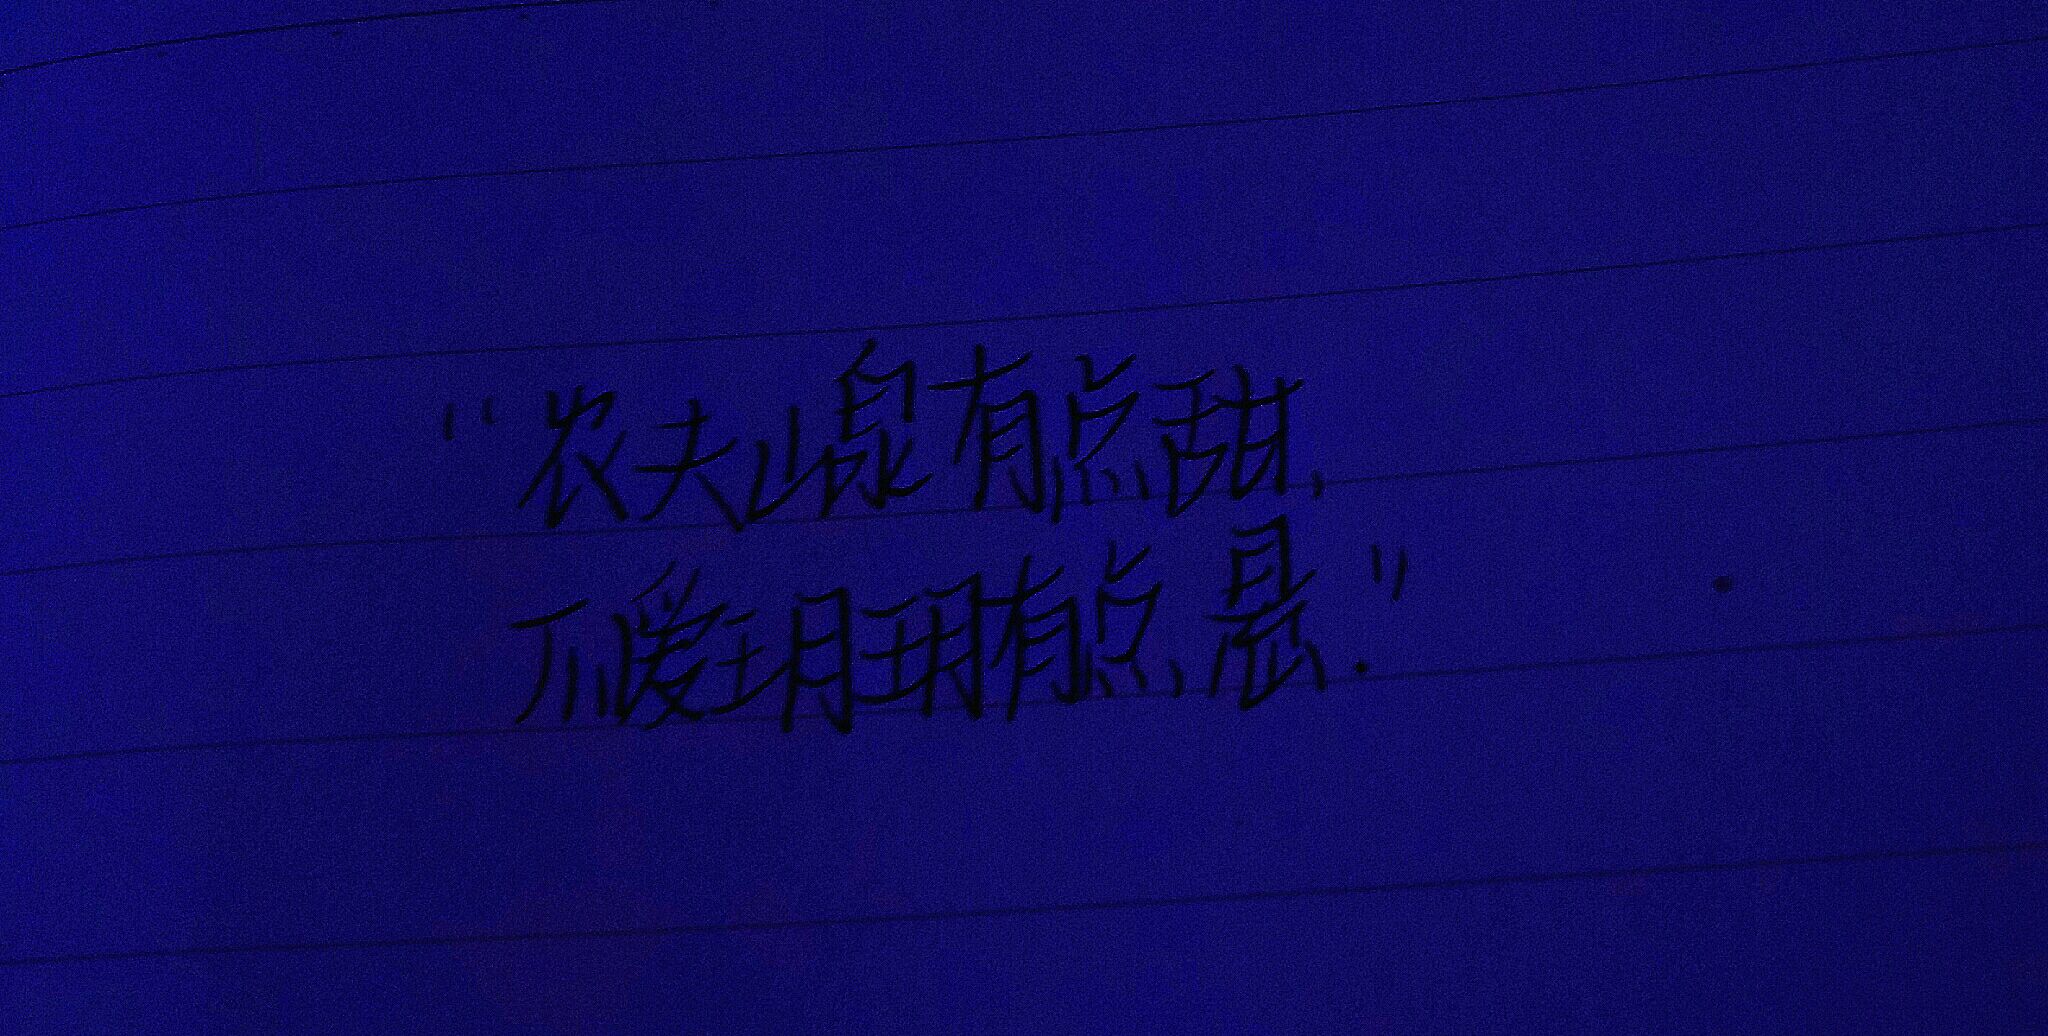 “农夫山泉有点甜，
不爱玥玥有点悬.”